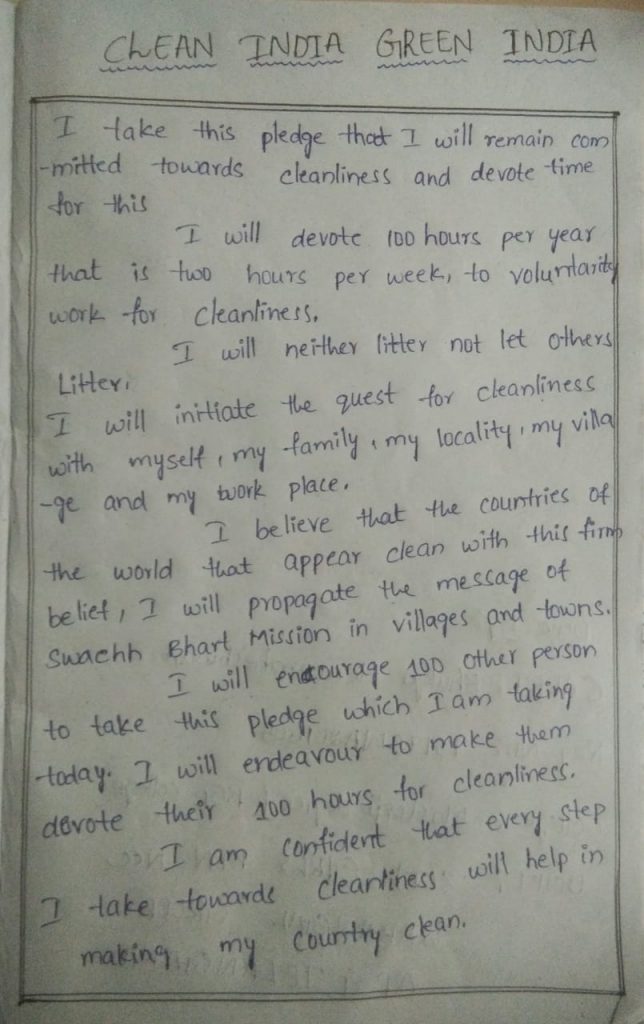 CLEAN INDIA GREEN INDIA
I take this pledge that I will remain com
-mitted towards cleanliness and devote time
for this
I will devote 100 hours per year
that is two hours per week, to voluntarity
work for cleanliness.
I will neither litter not let others
Litter.
I will initiate the quest for cleanliness
with myself, my family, my locality, my villa
-ge and my work place.
I believe that the countries of
the world that appear clean with this firm
belief, I will propagate the message of
Swachh Bhart Mission in villages and towns.
I will encourage 100 other person
to take this pledge which I am taking
today. I will endeavour to make them
devote their 100 hours for cleanliness.
I am confident that every step
I take towards cleanliness will help in
making my country clean.